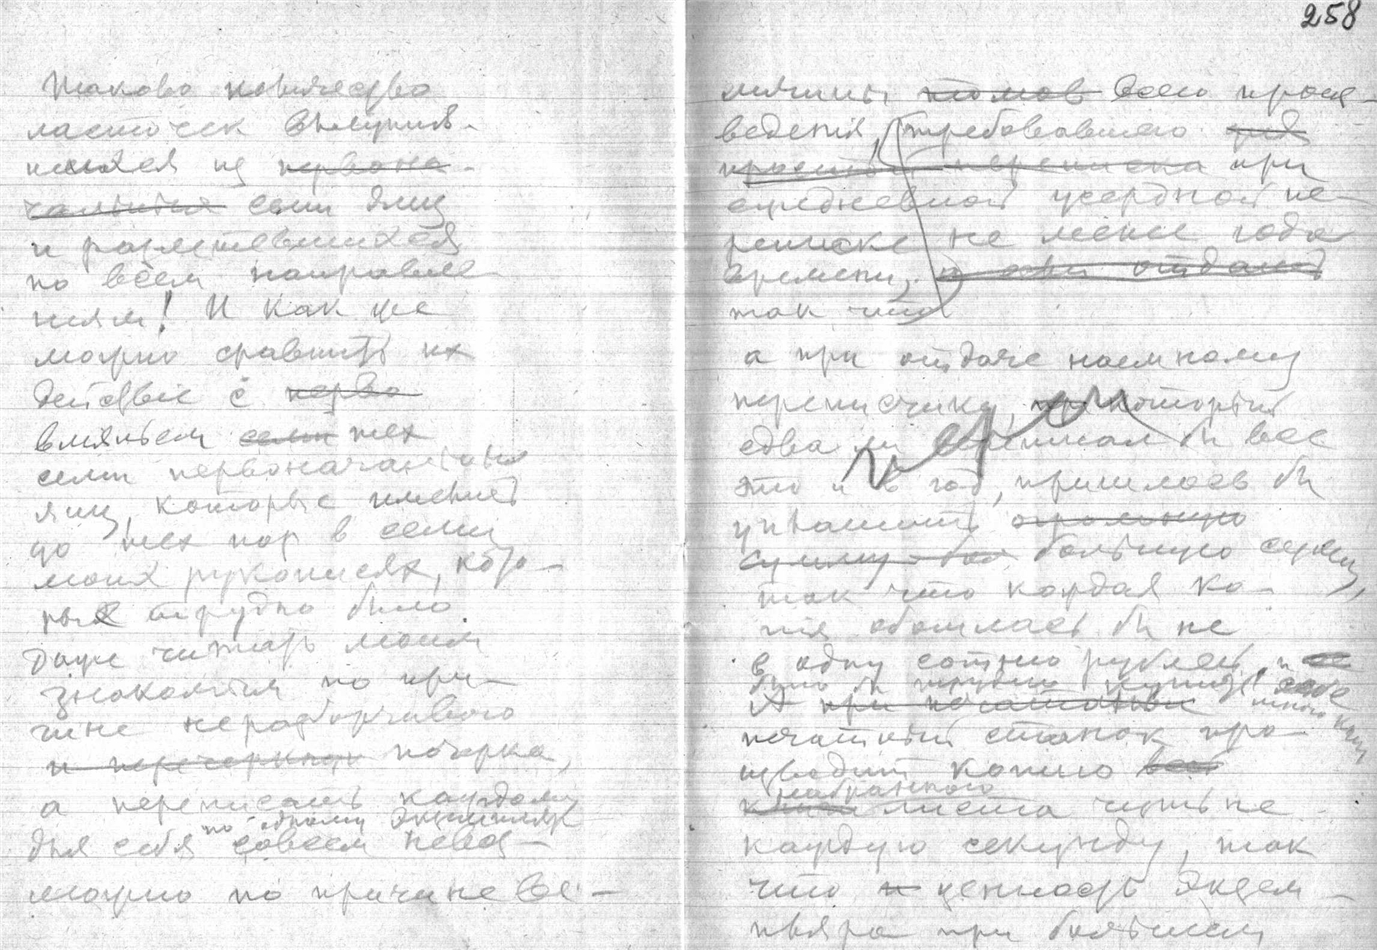 258
Таково количество
ласточек вылупив-
шихся из первона-
чальных семи яиц
и разлетевшихся
по всем направле-
ниям! И как же
можно сравнить их
действие с перво
влияньем семи тех
семи первоначальных
яиц, которые имеются
до тех пор в семи
моих рукописях, кото-
рых трудно было
даже читать моим
знакомым по при-
чине неразборчивого
и перечеркнут почерка,
а переписать каждому
по одному экземпляру
для себя совсем невоз-
можно по причине ве-
личины томов всего произ-
ведения, требовавшего для
простой переписки при
ежедневной усердной пе-
реписке не менее года
времени, а если отдать
так что
а при отдаче наемному
переписчику, который
едва ли переписал бы все
это и в год, пришлось бы
уплатить огромную
сумму бол большую сумму,
так что каждая ко-
пия обошлась бы не
в одну сотню рублей, и
было бы трудно
А при печатаньи
печатный станок про-
изводит копию всей
набранного
листа чуть не
каждую секунду, так
что и ценность экзем-
пляра при большом